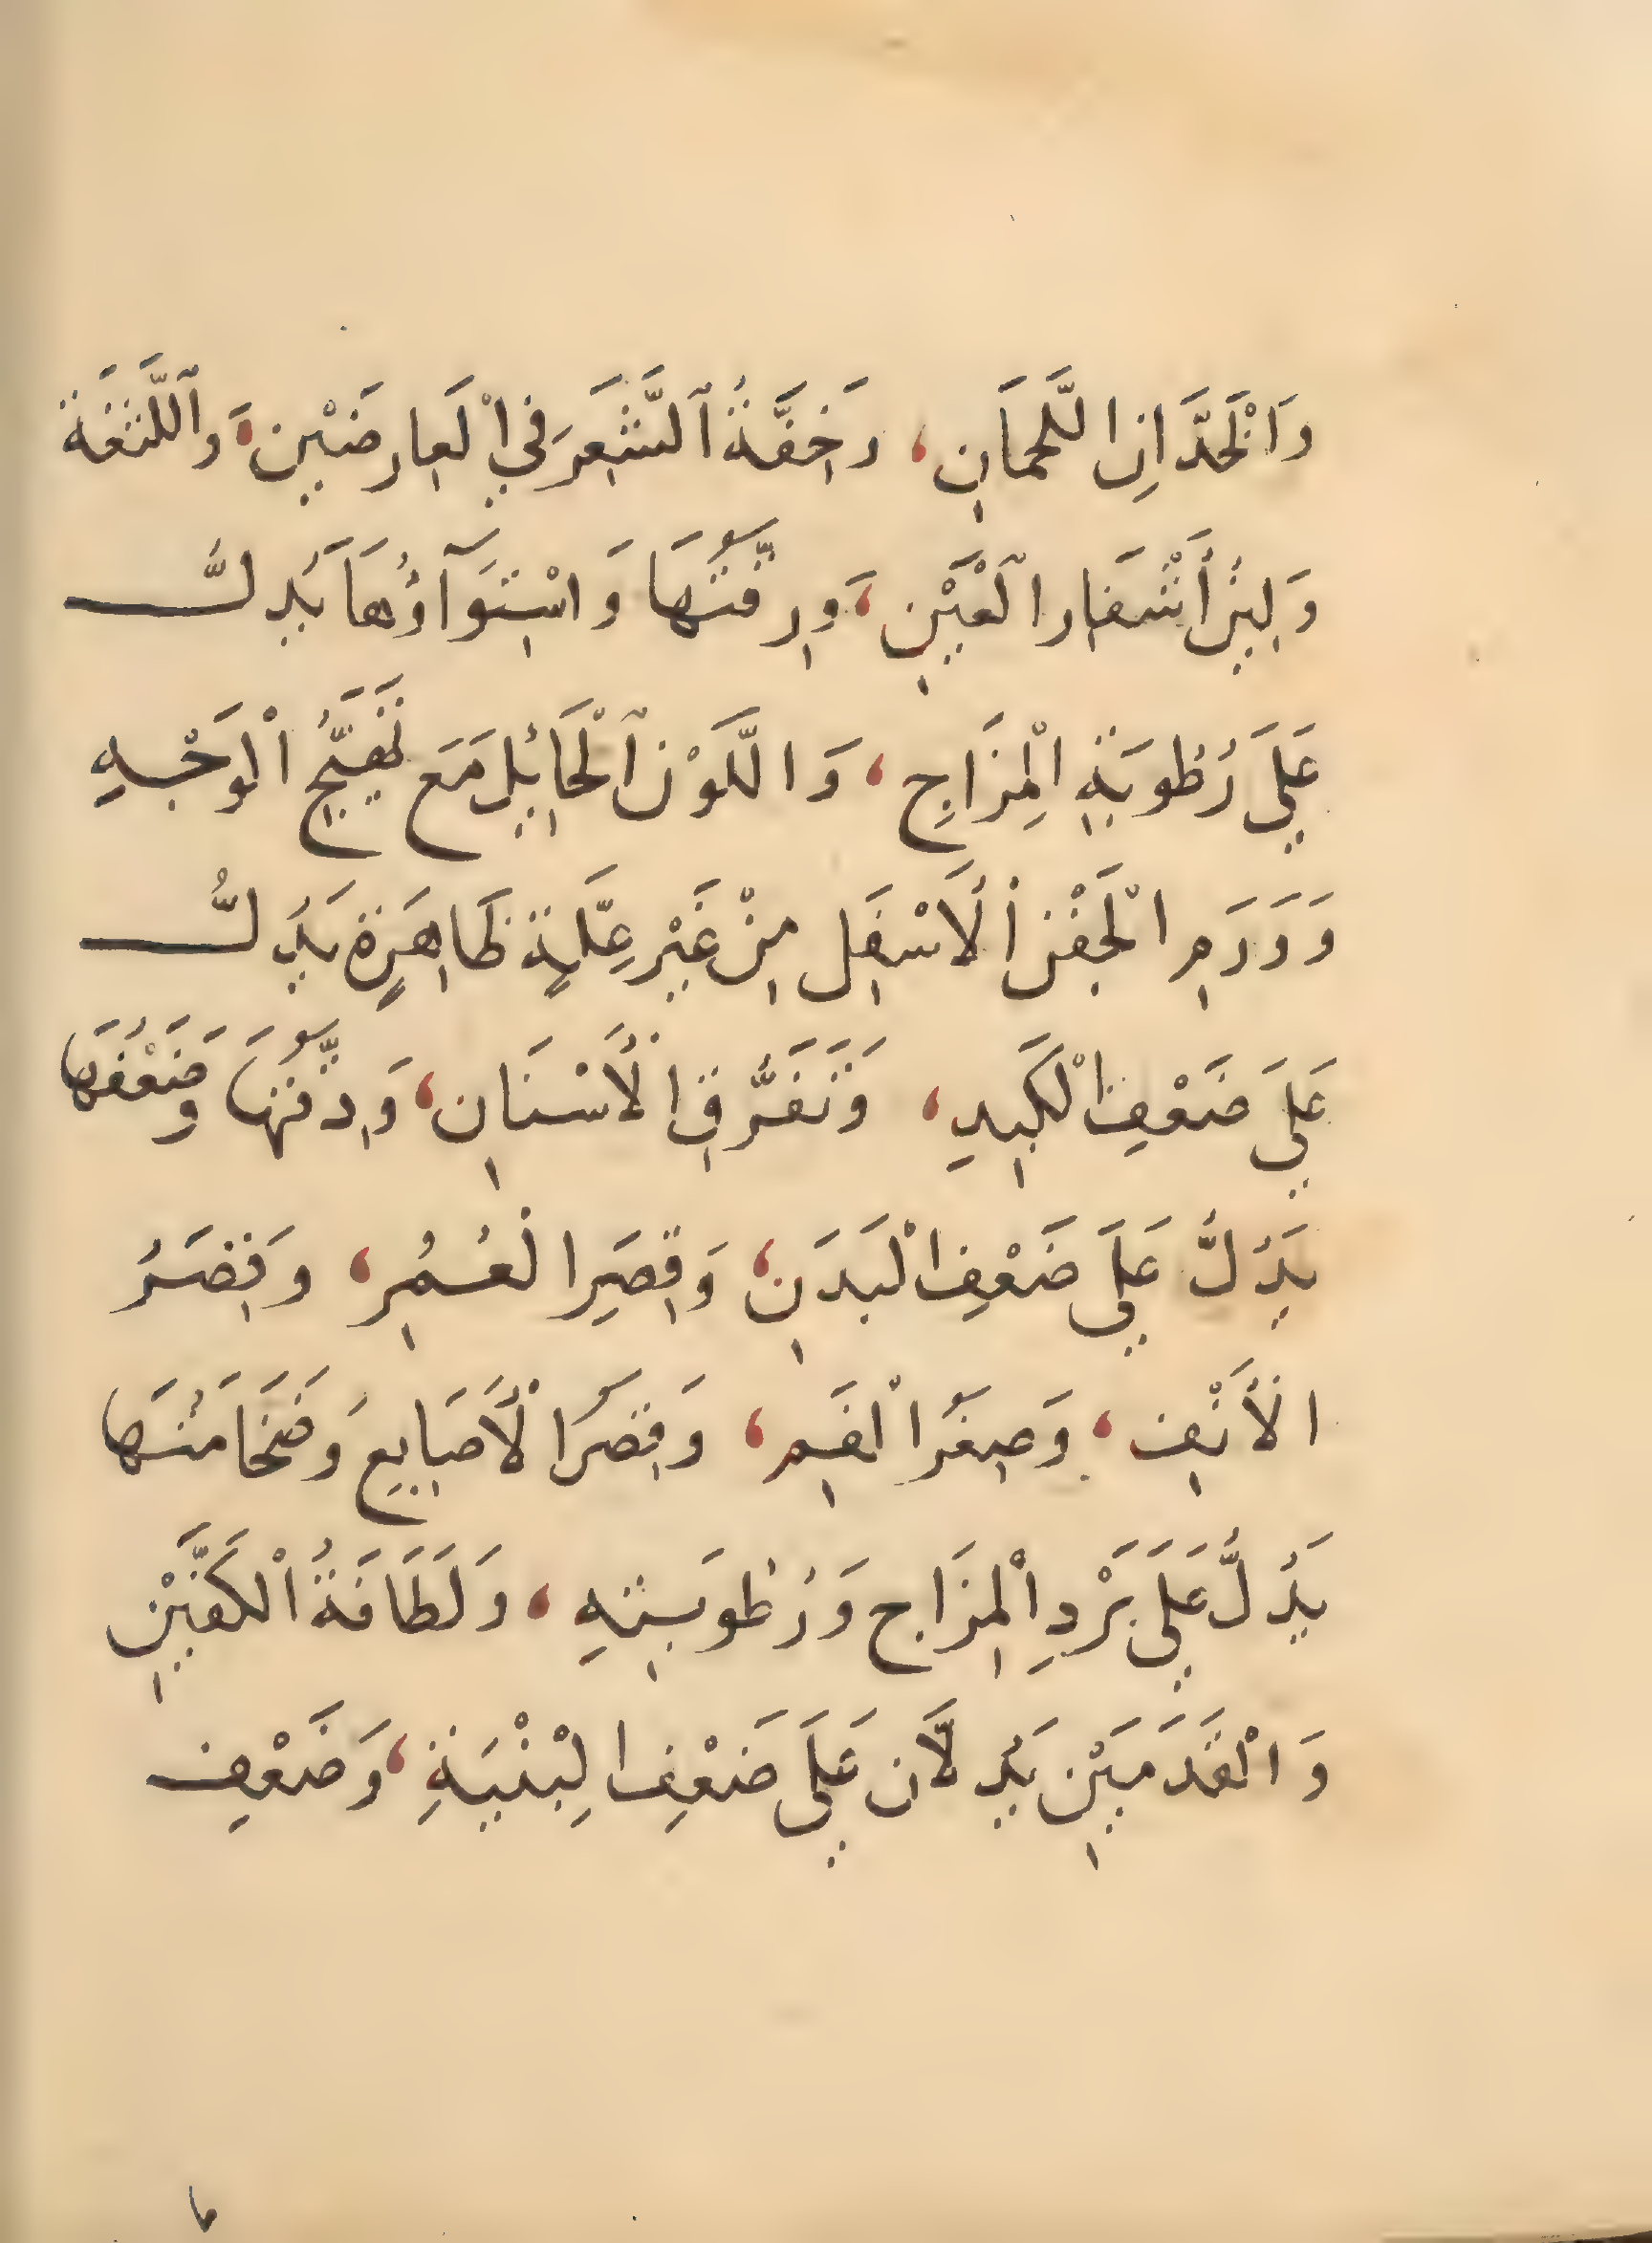 وَالْخَدَّانِ اللَّحْمَانِ، وَخِفَّةُ ٱلشَّعَرِ فِي الْعَارِضَيْنِ، وَٱللَّثْغَةُ
وَلِينُ أَشْفَارِ ٱلْعَيْنِ، وَرِقَّتُهَا وَاسْتِوَآؤُهَا يَدُلُّ
عَلَي رُطُوبَةِ الْمِزَاجِ، وَاللَّوْنُ ٱلْحَائِلُ مَعَ تَهَيُّجُ الْوَجْهِ
وَوَرَمِ الْجَفْنِ ٱلْأَسْفَلِ مِنْ غَيْرِ عِلَّةٍ ظَاهِرَةٍ يَدُلُّ
عَلَي ضَعْفِ الْكَبِدِ، وَتَفَرُّقِ الْأَسْنَانِ، وَدِقَّتُهَا وَضَعْفُهَا
يَدُلُّ عَلَي ضَعْفِ الْبَدَنِ، وَقِصَرِ الْعُمُرِ، وَقِصَرُ
الْأَنْفِ، وَصِغَرُ الْفَمِ، وَقِصَرُ الْأَصَابِعِ وَضَخَامَتُهَا
يَدُلُّ عَلَي بَرْدِ الْمِزَاجِ وَرُطُوبَتِهِ، وَلَطَافَةُ الْكَفَّيْنِ
وَالْقَدَمَيْنِ يَدُلَّانِ عَلَي ضَعْفِ الْبِنْيَةِ، وَضَعْفِ